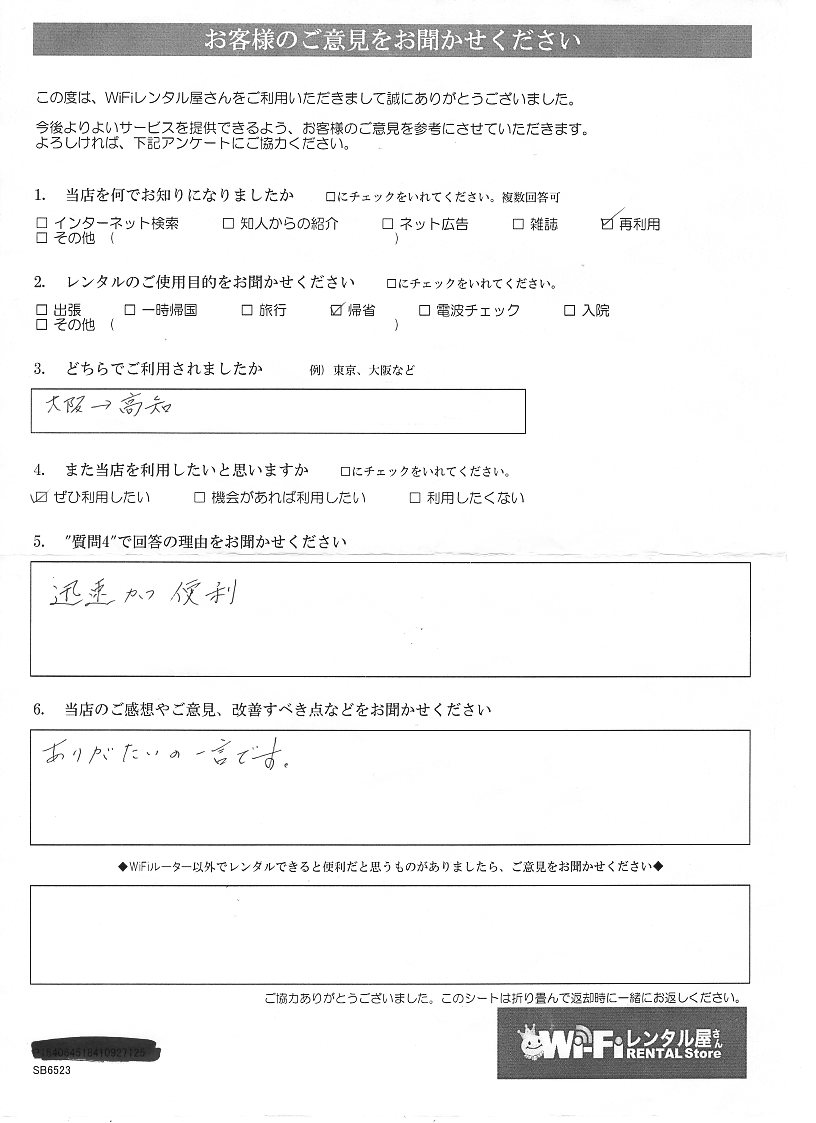 お客様のご意見をお聞かせください
この度は、WiFiレンタル屋さんをご利用いただきまして誠にありがとうございました。
今後よりよいサービスを提供できるよう、お客様のご意見を参考にさせていただきます。
よろしければ、下記アンケートにご協力ください。
1. 当店を何でお知りになりましたか □にチェックをいれてください。複数回答可
□ インターネット検索 □ 知人からの紹介 □ ネット広告 □ 雑誌 ☑ 再利用
□ その他 ( )
2. レンタルのご使用目的をお聞かせください □にチェックをいれてください。
□ 出張 □ 一時帰国 □ 旅行 ☑ 帰省 □ 電波チェック □ 入院
□ その他 ( )
3. どちらでご利用されましたか 例）東京、大阪など
大阪→高知
4. また当店を利用したいと思いますか □にチェックをいれてください。
☑ ぜひ利用したい □ 機会があれば利用したい □ 利用したくない
5. ″質問4″で回答の理由をお聞かせください
迅速かつ便利
6. 当店のご感想やご意見、改善すべき点などをお聞かせください
ありがたいの一言です。
◆WiFiルーター以外でレンタルできると便利だと思うものがありましたら、ご意見をお聞かせください◆
ご協力ありがとうございました。このシートは折り畳んで返却時に一緒にお返しください。
Wi-Fiレンタル屋さん
RENTAL Store
SB6523